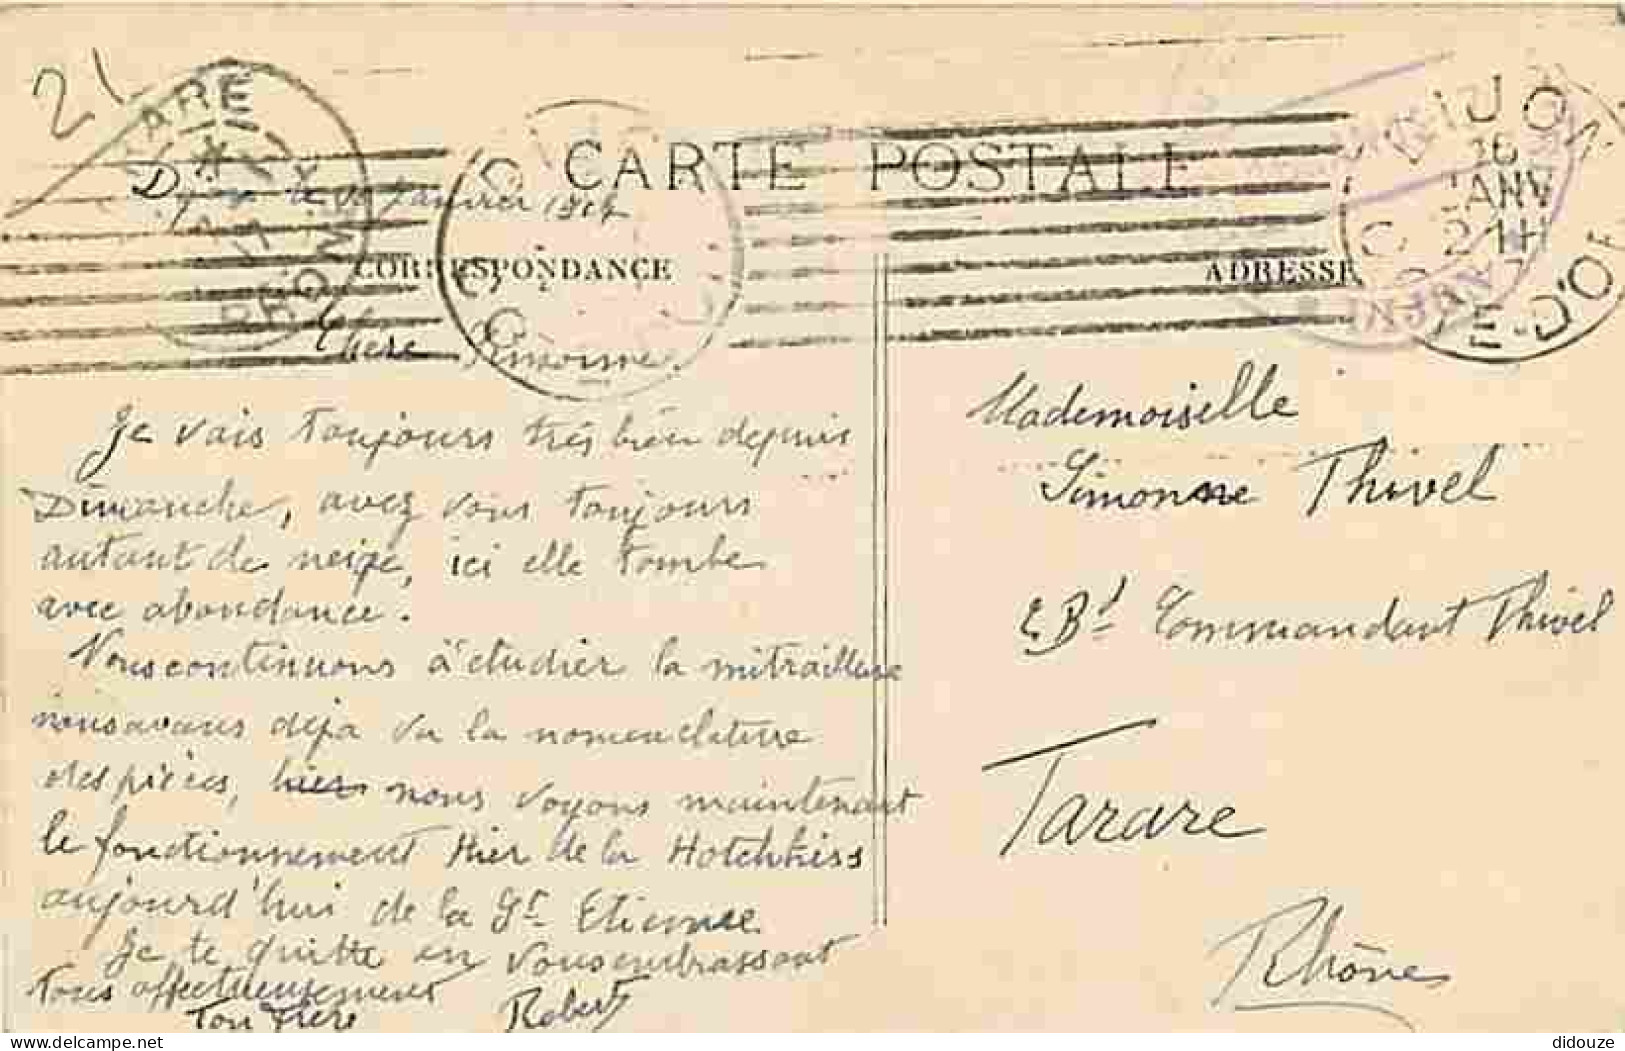 21
TARARE
RHONE
CARTE POSTALE
DIJON
JANV
21H
COTE-D'OR
Dijon le 20 Janvier
CORRESPONDANCE
ADRESSE
Chère Simonne.
Je vais toujours très bien depuis
Dimanche, avez vous toujours
autant de neige, ici elle tombe
avec abondance.
Nous continuons à étudier la mitrailleuse
nous avons déjà vu la nomenclature
des pièces, hier nous voyons maintenant
le fonctionnement Hier de la Hotchkiss
aujourd'hui de la St Etienne
Je te quitte en vous embrassant
tous affectueusement
Ton frère Robert
Mademoiselle
Simonne Thivel
2 Bd Commandant Thivel
Tarare
Rhône
didouze
delcampe.net